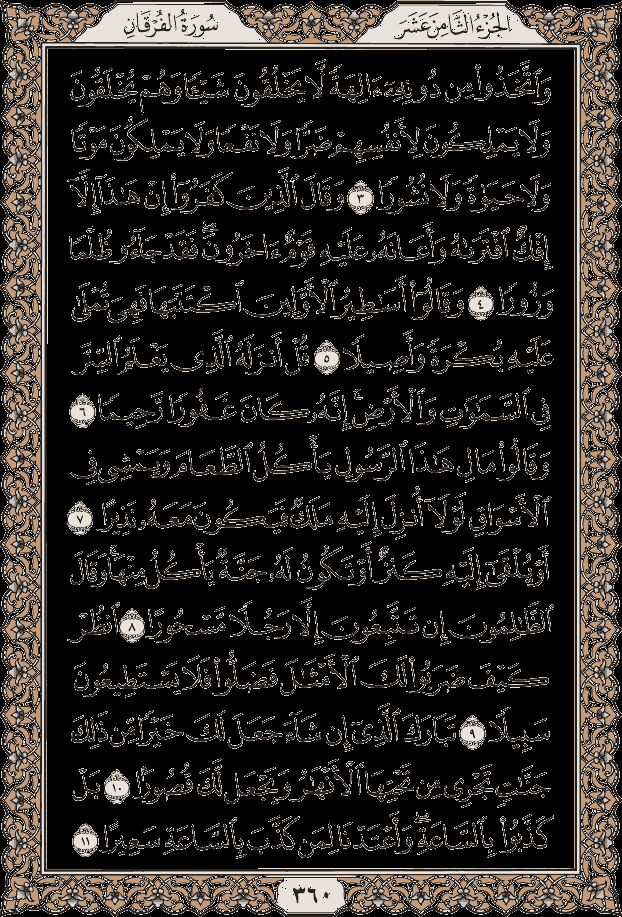 الجزء الثامن عشر
سورة الفرقان
وَٱتَّخَذُواْ مِن دُونِهِۦٓ ءَالِهَةً لَّا يَخْلُقُونَ شَيْـًٔا وَهُمْ يُخْلَقُونَ
وَلَا يَمْلِكُونَ لِأَنفُسِهِمْ ضَرًّا وَلَا نَفْعًا وَلَا يَمْلِكُونَ مَوْتًا
وَلَا حَيَوٰةً وَلَا نُشُورًا ٣ وَقَالَ ٱلَّذِينَ كَفَرُوٓاْ إِنْ هَـٰذَآ إِلَّآ
إِفْكٌ ٱفْتَرَىٰهُ وَأَعَانَهُۥ عَلَيْهِ قَوْمٌ ءَاخَرُونَ ۖ فَقَدْ جَآءُو ظُلْمًا
وَزُورًا ٤ وَقَالُوٓاْ أَسَـٰطِيرُ ٱلْأَوَّلِينَ ٱكْتَتَبَهَا فَهِىَ تُمْلَىٰ
عَلَيْهِ بُكْرَةً وَأَصِيلًا ٥ قُلْ أَنزَلَهُ ٱلَّذِى يَعْلَمُ ٱلسِّرَّ
فِى ٱلسَّمَـٰوَٰتِ وَٱلْأَرْضِ ۚ إِنَّهُۥ كَانَ غَفُورًا رَّحِيمًا ٦
وَقَالُواْ مَالِ هَـٰذَا ٱلرَّسُولِ يَأْكُلُ ٱلطَّعَامَ وَيَمْشِى فِى
ٱلْأَسْوَاقِ ۙ لَوْلَآ أُنزِلَ إِلَيْهِ مَلَكٌ فَيَكُونَ مَعَهُۥ نَذِيرًا ٧
أَوْ يُلْقَىٰٓ إِلَيْهِ كَنزٌ أَوْ تَكُونُ لَهُۥ جَنَّةٌ يَأْكُلُ مِنْهَا ۚ وَقَالَ
ٱلظَّـٰلِمُونَ إِن تَتَّبِعُونَ إِلَّا رَجُلًا مَّسْحُورًا ٨ ٱنظُرْ
كَيْفَ ضَرَبُواْ لَكَ ٱلْأَمْثَـٰلَ فَضَلُّواْ فَلَا يَسْتَطِيعُونَ
سَبِيلًا ٩ تَبَارَكَ ٱلَّذِىٓ إِن شَآءَ جَعَلَ لَكَ خَيْرًا مِّن ذَٰلِكَ
جَنَّـٰتٍ تَجْرِى مِن تَحْتِهَا ٱلْأَنْهَـٰرُ وَيَجْعَل لَّكَ قُصُورًۢا ١٠ بَلْ
كَذَّبُواْ بِٱلسَّاعَةِ ۖ وَأَعْتَدْنَا لِمَن كَذَّبَ بِٱلسَّاعَةِ سَعِيرًا ١١
٣٦٠